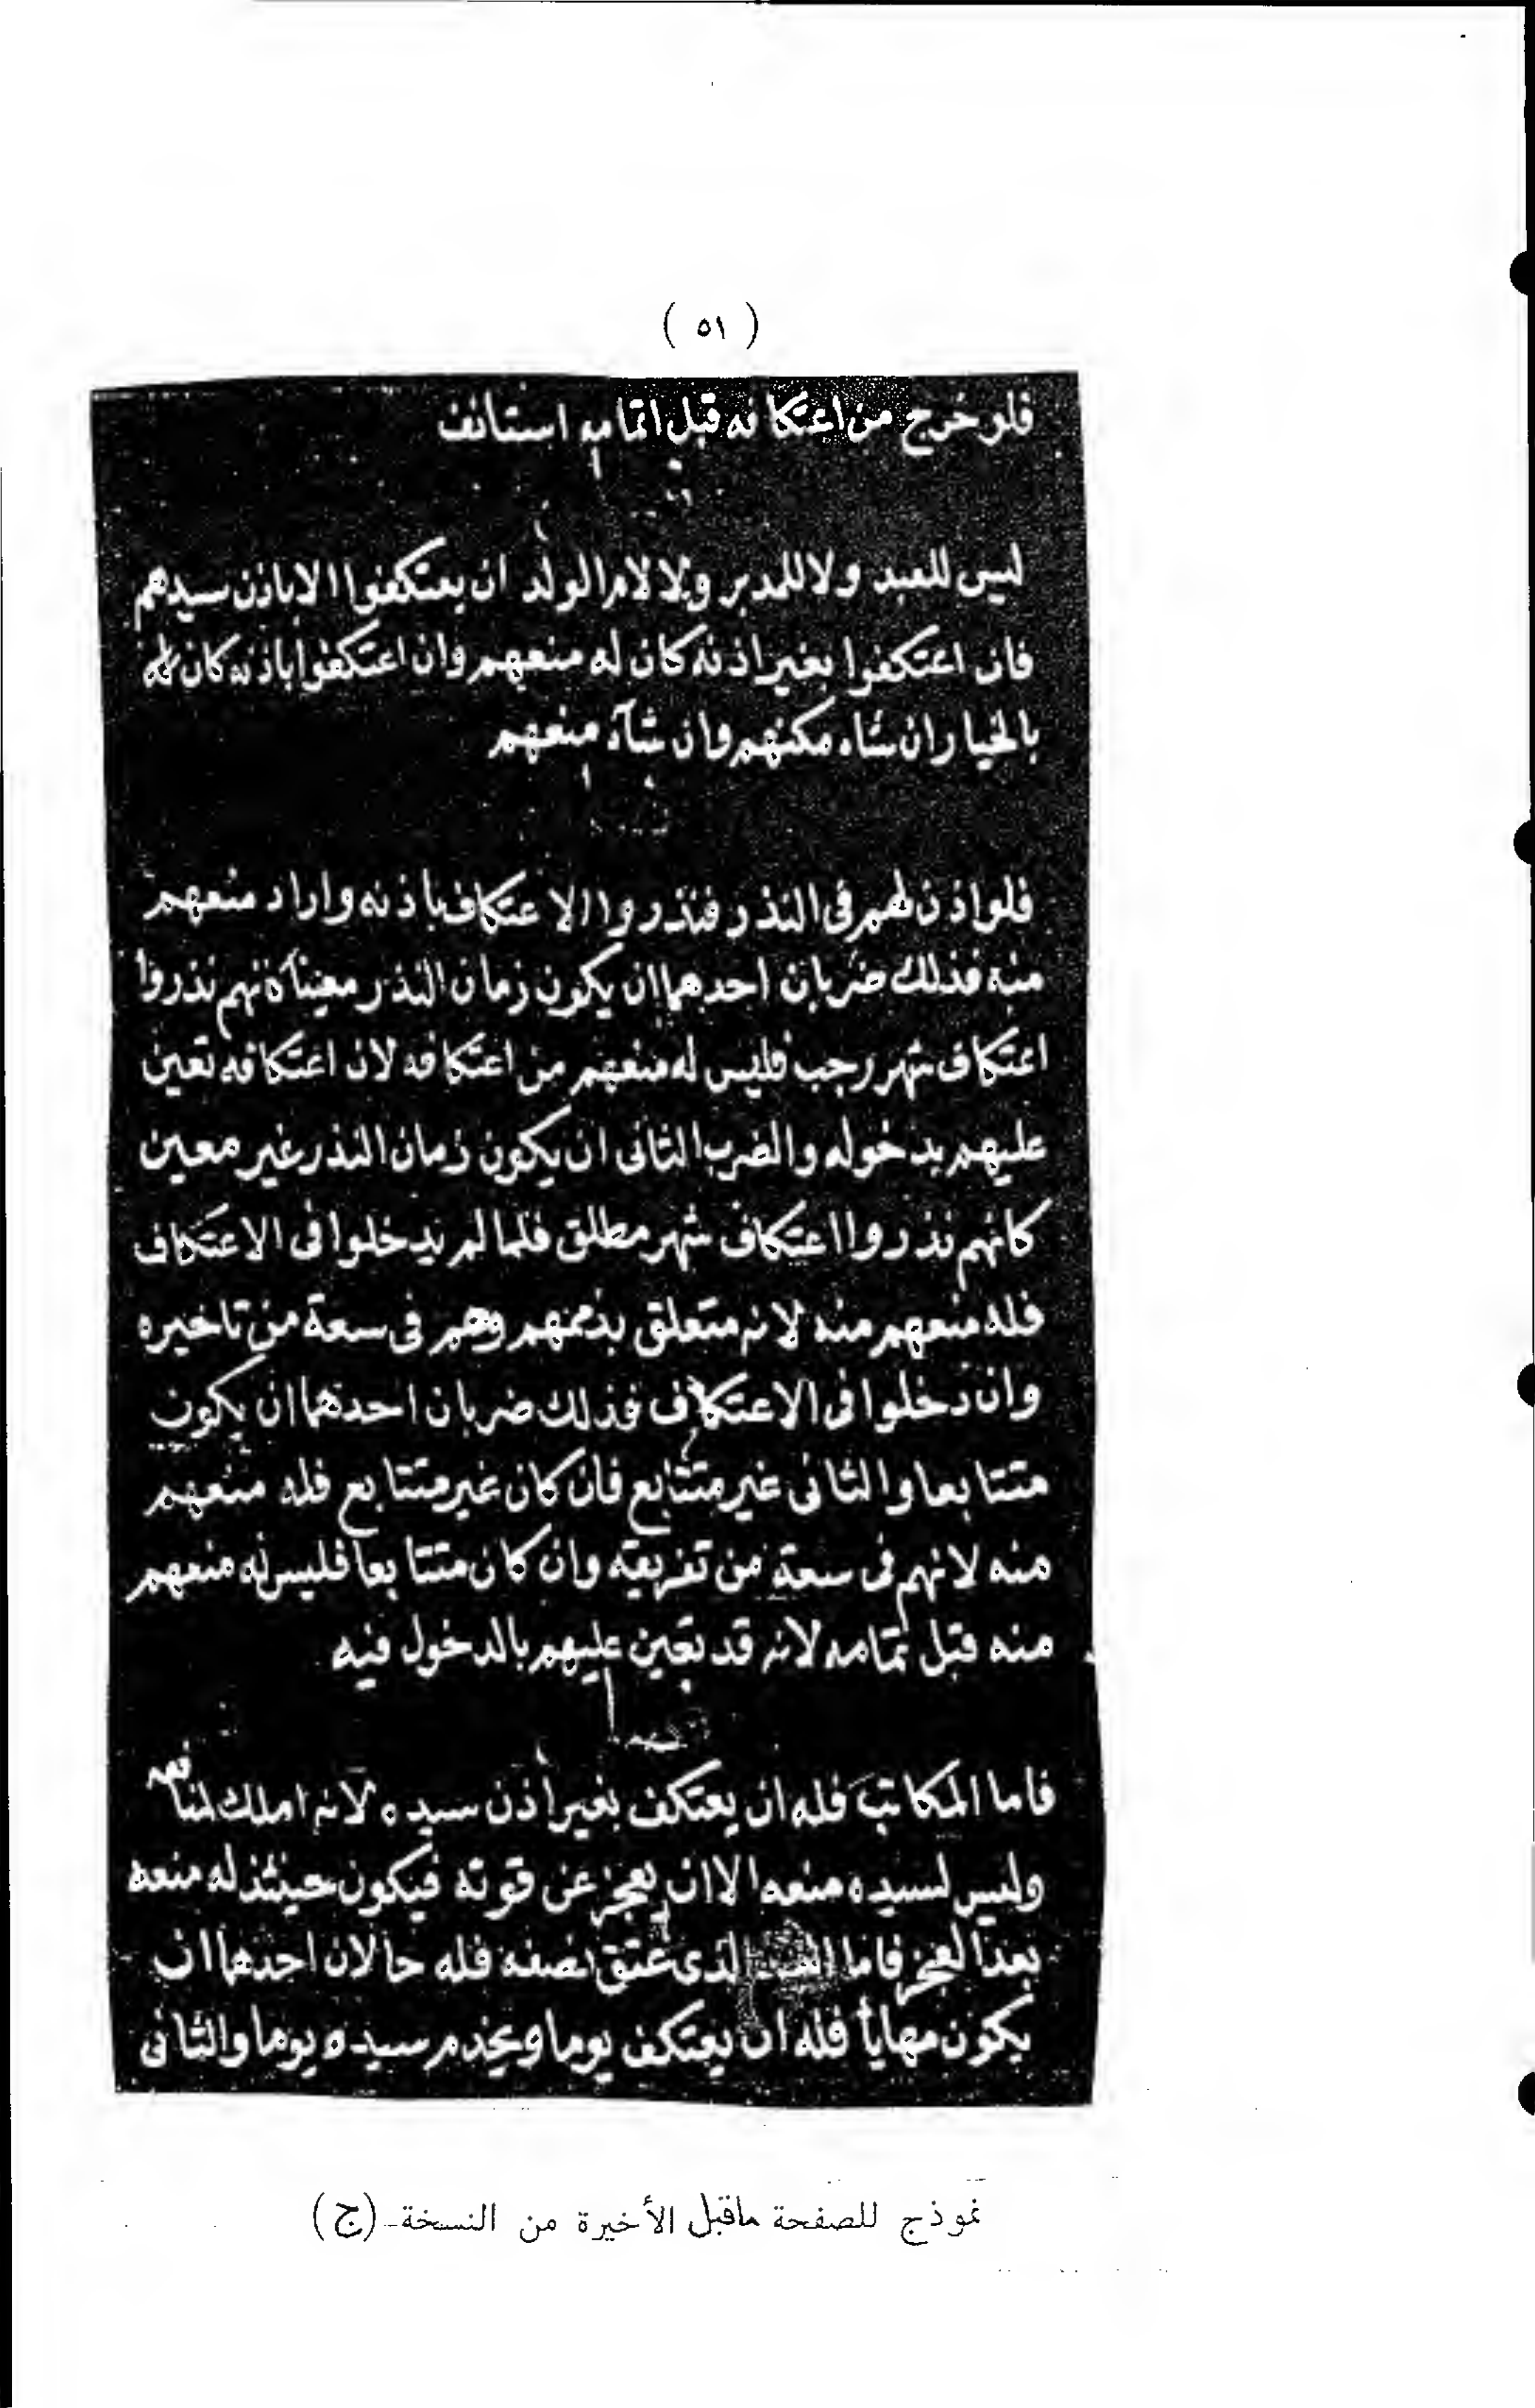 ( ٥١ )
فلو خرج من اعتكافه قبل اتمامه استانف
ليس للعبد ولا للمدبر ولا لام الولد ان يعتكفوا الا باذن سيدهم
فان اعتكفوا بغير اذنه كان له منعهم وان اعتكفوا باذنه كان له
بالخيار ان شاء مكنهم وان شآء منعهم
فلو اذن لهم فى النذر فنذروا الاعتكاف باذنه واراد منعهم
منه فذلك ضربان احدهما ان يكون زمان النذر معينا كانهم نذروا
اعتكاف شهر رجب فليس له منعهم من اعتكافه لان اعتكافه تعين
عليهم بدخوله والضرب الثانى ان يكون زمان النذر غير معين
كانهم نذروا اعتكاف شهر مطلق فلما لم يدخلوا فى الاعتكاف
فله منعهم منه لانه متعلق بذممهم وهم فى سعة من تاخيره
وان دخلوا فى الاعتكاف فذلك ضربان احدهما ان يكون
متتابعا والثانى غير متتابع فان كان غير متتابع فله منعهم
منه لانهم فى سعة من تفريقه وان كان متتابعا فليس له منعهم
منه قبل تمامه لانه قد تعين عليهم بالدخول فيه
فاما المكاتب فله ان يعتكف بغير اذن سيده لانه املك لمنافعه
وليس لسيده منعه الا ان يعجز عن قوته فيكون حينئذ له منعه
بعد العجز فاما الذى عتق نصفه فله حالان احدهما ان
يكون مهايأ فله ان يعتكف يوما ويخدم سيده يوما والثانى
نموذج للصفحة ماقبل الأخيرة من النسخة (ج)